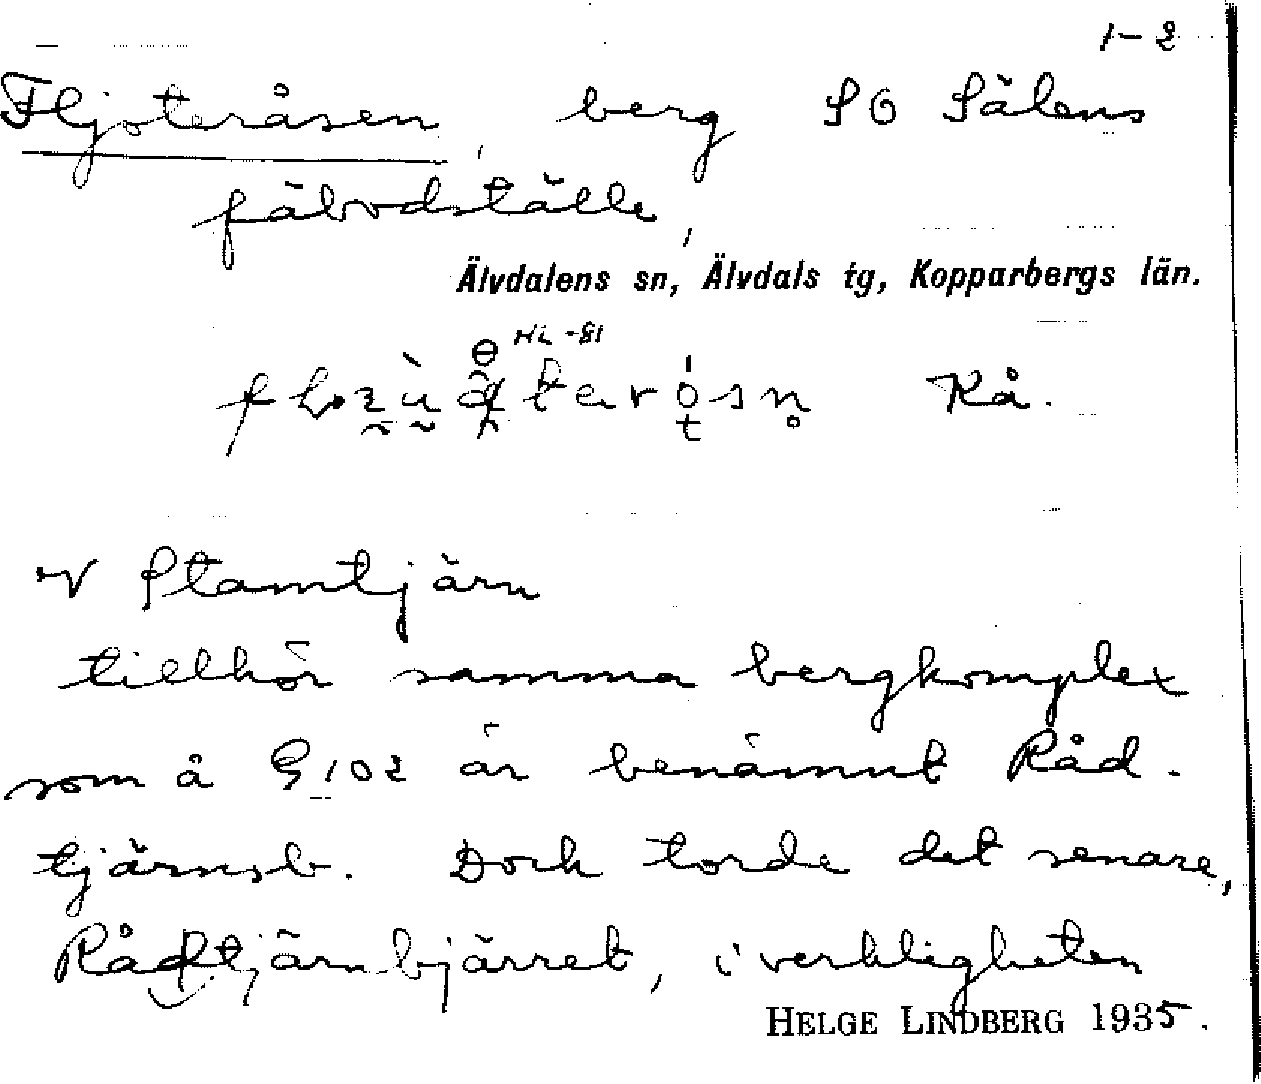 1-2
Fljoteråsen, berg SO Sälens
fäbodställe,
Älvdalens sn, Älvdals tg, Kopparbergs län.
HL -81
Kå.
V Stamtjärn
tillhör samma bergkomplex
som å G 102 är benämnt Råd-
tjärnsb. Dock torde det senare,
Rådtjärnbjärret, i verkligheten
HELGE LINDBERG 1935.